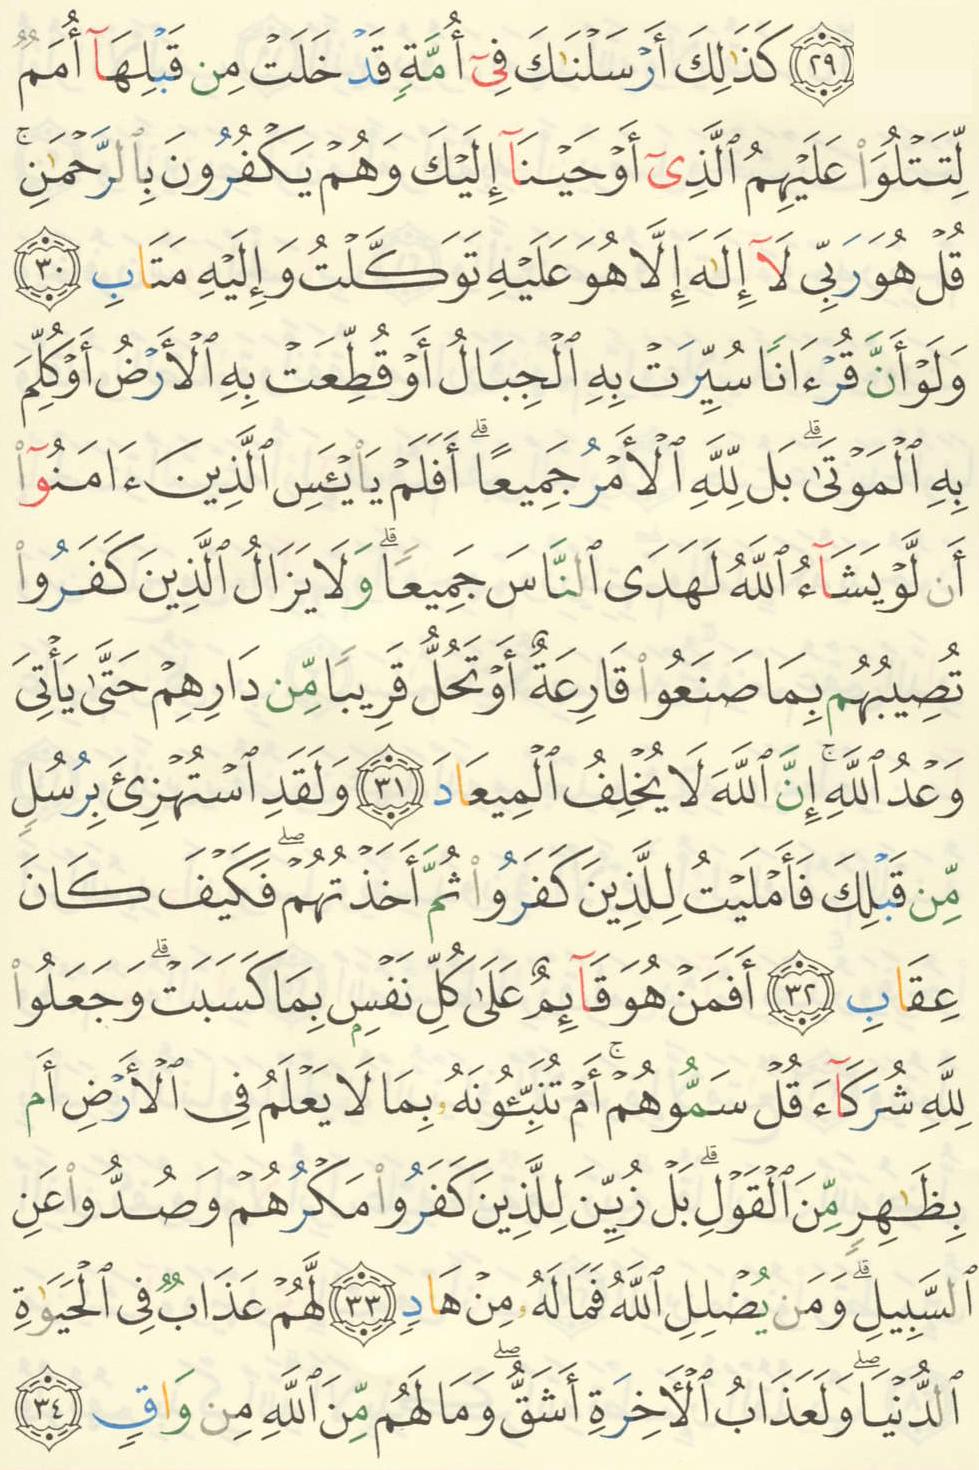 ﴿٢٩﴾ كَذَٰلِكَ أَرۡسَلۡنَٰكَ فِيٓ أُمَّةٖ قَدۡ خَلَتۡ مِن قَبۡلِهَآ أُمَمٞ
لِّتَتۡلُوَاْ عَلَيۡهِمُ ٱلَّذِيٓ أَوۡحَيۡنَآ إِلَيۡكَ وَهُمۡ يَكۡفُرُونَ بِٱلرَّحۡمَٰنِۚ
قُلۡ هُوَ رَبِّي لَآ إِلَٰهَ إِلَّا هُوَ عَلَيۡهِ تَوَكَّلۡتُ وَإِلَيۡهِ مَتَابِ ﴿٣٠﴾
وَلَوۡ أَنَّ قُرۡءَانٗا سُيِّرَتۡ بِهِ ٱلۡجِبَالُ أَوۡ قُطِّعَتۡ بِهِ ٱلۡأَرۡضُ أَوۡ كُلِّمَ
بِهِ ٱلۡمَوۡتَىٰۗ بَل لِّلَّهِ ٱلۡأَمۡرُ جَمِيعًاۗ أَفَلَمۡ يَاْيۡـَٔسِ ٱلَّذِينَ ءَامَنُوٓاْ
أَن لَّوۡ يَشَآءُ ٱللَّهُ لَهَدَى ٱلنَّاسَ جَمِيعٗاۗ وَلَا يَزَالُ ٱلَّذِينَ كَفَرُواْ
تُصِيبُهُم بِمَا صَنَعُواْ قَارِعَةٌ أَوۡ تَحُلُّ قَرِيبٗا مِّن دَارِهِمۡ حَتَّىٰ يَأۡتِيَ
وَعۡدُ ٱللَّهِۚ إِنَّ ٱللَّهَ لَا يُخۡلِفُ ٱلۡمِيعَادَ ﴿٣١﴾ وَلَقَدِ ٱسۡتُهۡزِئَ بِرُسُلٖ
مِّن قَبۡلِكَ فَأَمۡلَيۡتُ لِلَّذِينَ كَفَرُواْ ثُمَّ أَخَذۡتُهُمۡۖ فَكَيۡفَ كَانَ
عِقَابِ ﴿٣٢﴾ أَفَمَنۡ هُوَ قَآئِمٌ عَلَىٰ كُلِّ نَفۡسِۭ بِمَا كَسَبَتۡۗ وَجَعَلُواْ
لِلَّهِ شُرَكَآءَ قُلۡ سَمُّوهُمۡۚ أَمۡ تُنَبِّـُٔونَهُۥ بِمَا لَا يَعۡلَمُ فِي ٱلۡأَرۡضِ أَم
بِظَٰهِرٖ مِّنَ ٱلۡقَوۡلِۗ بَلۡ زُيِّنَ لِلَّذِينَ كَفَرُواْ مَكۡرُهُمۡ وَصُدُّواْ عَنِ
ٱلسَّبِيلِۗ وَمَن يُضۡلِلِ ٱللَّهُ فَمَا لَهُۥ مِنۡ هَادٖ ﴿٣٣﴾ لَّهُمۡ عَذَابٞ فِي ٱلۡحَيَوٰةِ
ٱلدُّنۡيَاۖ وَلَعَذَابُ ٱلۡأٓخِرَةِ أَشَقُّۖ وَمَا لَهُم مِّنَ ٱللَّهِ مِن وَاقٖ ﴿٣٤﴾